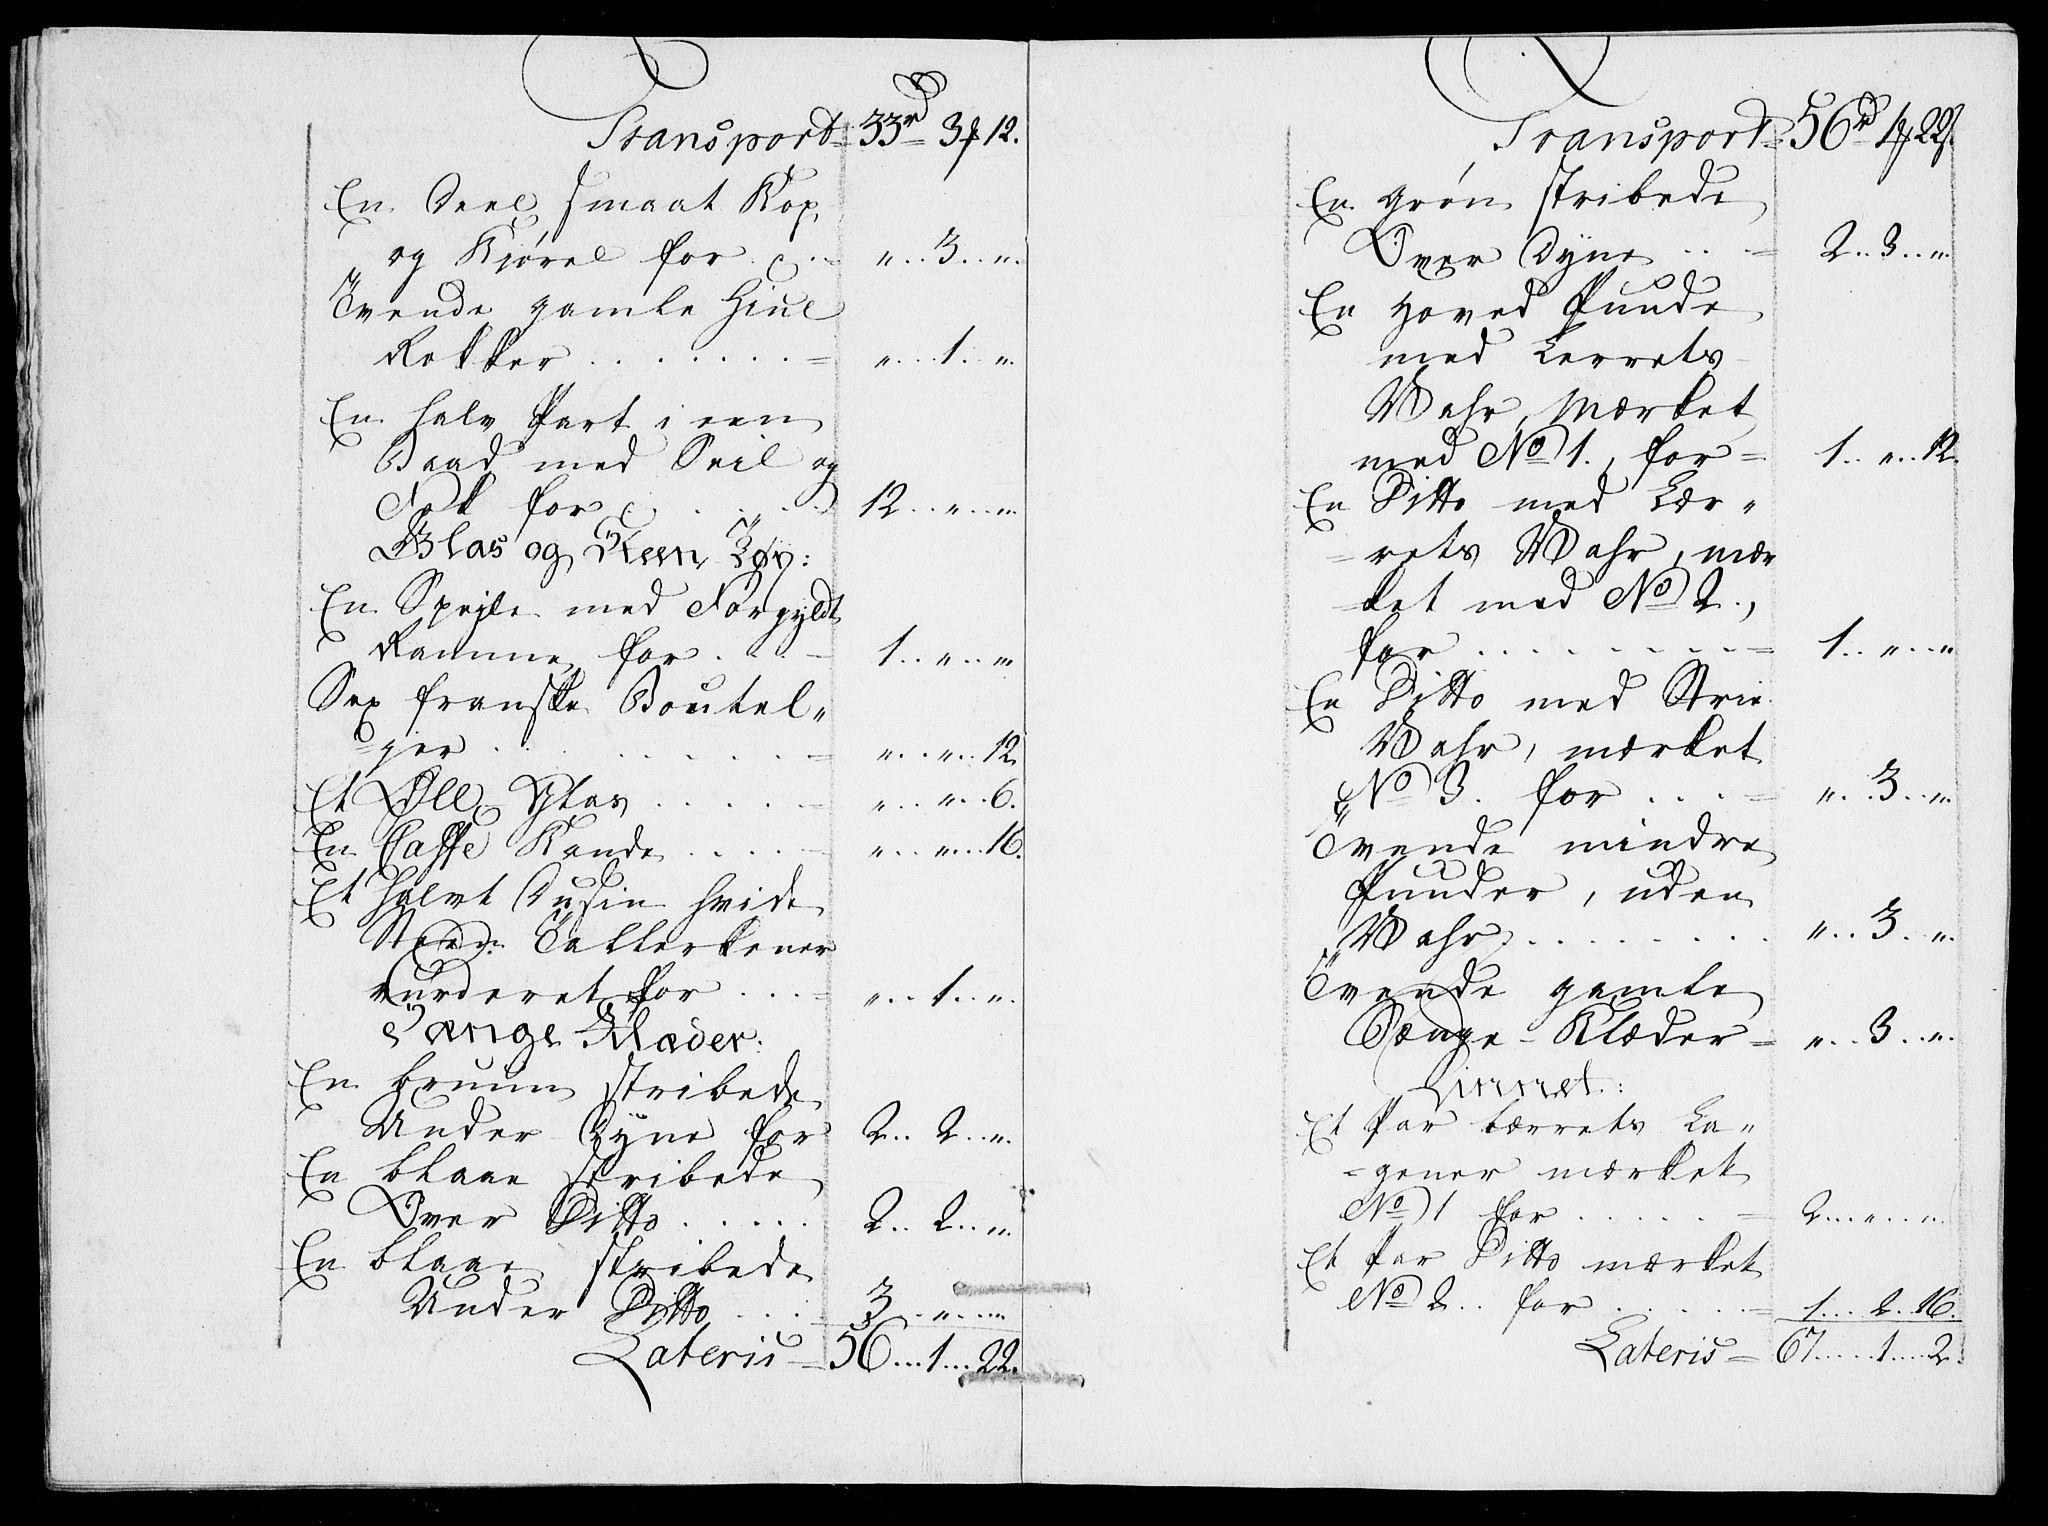 Transport = 33rd 3ʄ 12.
En Deel smaat Kop
og Kjørel for . . . „ . . 3 . . „.
Tvende gamle Hiul
Rokker . . . . . . . = „ . . . 1 . . „.
En halv Part i een
Baad med Seil og
Fok for . . . . 12 . . „ . . „.
Glas og Steen Tøy:
En Spejle med Forgyldt
Ramme for . . . = 1 . . „ . . „.
Sex franske Boutel„
=jer . . . . . . . = „ . . „ . . 12
Et Øll Glas . . . . . = „ . . „ . . 6.
En Caffe Kande . . . . = „ . . „ . . 16.
Et halvt Dusin hvide
Steen Tallerkener
vurderet for . . . = „ . . 1 . . „.
Sænge Klæder:
En bruun stribede
Under Dyne for 2 . . 2 . . „.
En blaae stribede
Over Ditto . . . . . 2 . . 2 . . „.
En blaae stribede
Under Ditto . . . 3 . . „ . . „.
Lateris = 56 . . . 1 . . . 22.
Transport = 56rd 1ʄ 22s.
En grøn stribede
Over Dyne . . . = 2 . . 3 . . „.
En Hoved Puude
med Lerrets
Wahr, Mærket
med No 1., for = 1 . . „ . . 12.
En Ditto med Lær„
=rets Wahr, mær
ket med No 2.,
for . . . . . . . . = 1 . . „ . . „
En Ditto med Strie
Wahr, mærket
No 3. for . . . = „ . . 3 . . „.
Tvende mindre
Puuder, uden
Wahr . . . . . . . „ . . 3 . . „.
Tvende gamle
Sænge-Klæder = „ . . 3 . . „.
Linnet.:
Et Par Lærrets La„
=gener mærket
No 1 for . . . . . = 2 . . . „ . . . „.
Et Par Ditto mærket
No 2. . for . . . . . = 1 . . . 2 . 16.
Lateris = 67 . . . . 1 . . . . 2.